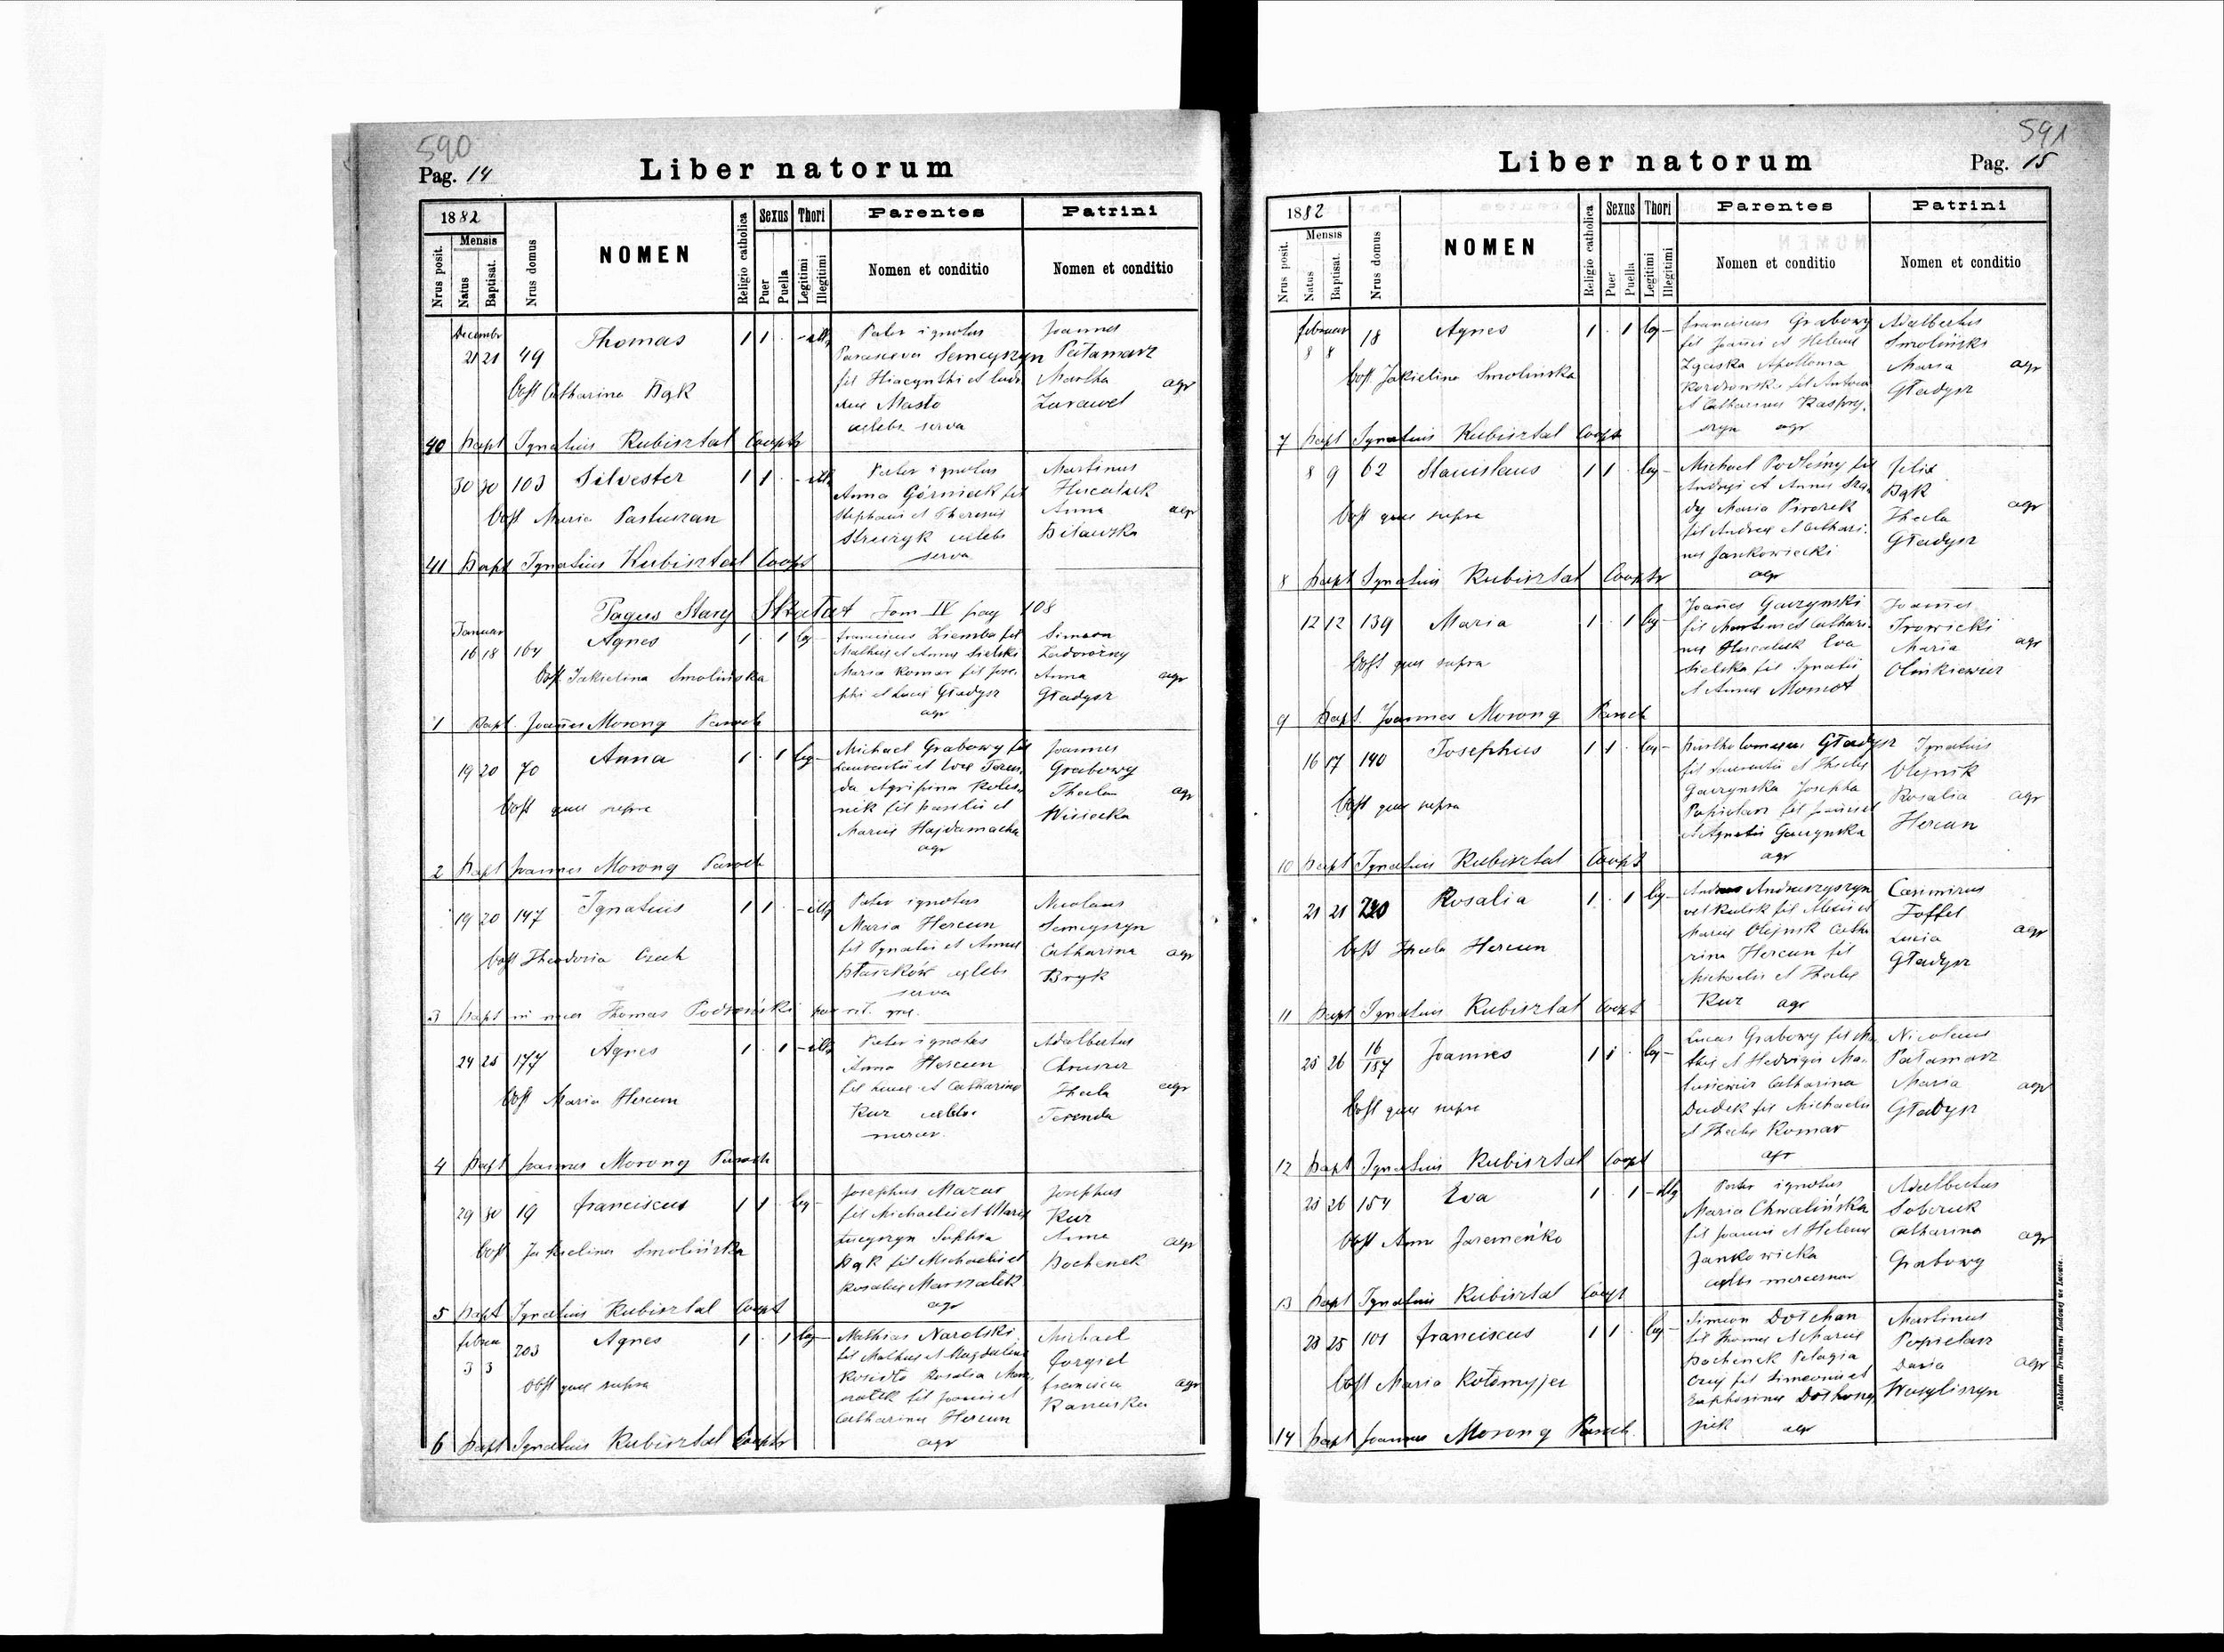 590
Pag. 14
Liber natorum
1882
Mensis
Nrus posit.
Natus
Baptisat.
Nrus domus
NOMEN
Religio catholica
Sexus
Puer
Puella
Thori
Legitimi
Illegitimi
Parentes
Nomen et conditio
Patrini
Nomen et conditio
Decembr
21 21 49 Thomas 1 1 . - illg
Pater ignotus
Parasceva Semczyszyn
fil Hiacynthi et
Masło
celebs serva
Joannes
Patamarz
Martha agr
Zurawel
Obst Catharina Bąk
40 Bapt Ignatius Kubisztal Cooptr
30 30 103 Silvester 1 1 . - illg
Pater ignotus
Anna Górniak fil
Stephani et Theresiae
celebs
serva
Martinus
Hucaluk
Anna agr
Bilawska
Obst Maria Pastuszan
41 Bapt Ignatius Kubisztal Coopt
Pagus Stary Skałat Tom IV pag 108
Januar
16 18 164 Agnes 1 . 1 leg -
Franciscus Ziemba fil
Mathei et Annae Sielski
Maria Komar fil Jose-
phi et Luciae Gładysz
agr
Simeon
Zadorożny
Anna agr
Gładysz
Obst Jakielina Smolińska
1 Bapt. Joañes Morong Paroch
19 20 70 Anna 1 . 1 leg -
Michael Grabowy fil
Laurentii et Evae Teren-
da Agripina Koles-
nik fil Basilii et
Mariae Hajdamacha
agr
Joannes
Grabowy
Thecla agr
Wisiecka
Obst quae supra
2 Bapt Joannes Morong Paroch
19 20 147 Ignatius 1 1 . - illg
Pater ignotus
Maria Hercun
fil Ignatii et Annae
Ptaszków celebs
serva
Nicolaus
Semczyszyn
Catharina agr
Bryk
Obst Theodoria Czech
3 Bapt Thomas rit. grae.
24 25 177 Agnes 1 . 1 - illg
Pater ignotus
Anna Hercun
fil Lucae et Catharinae
Kur celebs
mercen.
Adalbertus
Chruszcz
Thecla agr
Terenda
Obst Maria Hercun
4 Bapt Joannes Morong Paroch
29 30 19 Franciscus 1 1 . leg -
Josephus Mazur
fil Michaelis et Mariae
Sophia
Bąk fil Michaelis et
Rosaliae Marszałek
agr
Josephus
Kur
Anna agr
Bochenek
Obst Jakielina Smolińska
5 Bapt Ignatius Kubisztal Coopt
Februa
3 3 203 Agnes 1 . 1 leg -
Mathias Narolski
fil Mathei et Magdalenae
Rosalia Mar-
szałek fil Joannis et
Catharinae Hercun
agr
Michael
Gorgiel
Francisca agr
Kaneuska
Obst quae supra
6 Bapt Ignatius Kubisztal Cooptr
591
Pag. 15
Liber natorum
1882
Mensis
Nrus posit.
Natus
Baptisat.
Nrus domus
NOMEN
Religio catholica
Sexus
Puer
Puella
Thori
Legitimi
Illegitimi
Parentes
Nomen et conditio
Patrini
Nomen et conditio
Februar
8 8 18 Agnes 1 . 1 leg -
Franciscus Grabowy
fil Joañis et Helenae
Apollonia
fil Antonii
et Catharinae Kaspry-
szyn agr
Adalbertus
Smoliński
Maria agr
Gładysz
Obst Jakielina Smolińska
7 Bapt Ignatius Kubisztal Coopt
8 9 62 Stanislaus 1 1 . leg -
Michael Podleśny fil
Andreji et Annae
Maria Pirożek
fil Andreae et Cathari-
nae Jankowiecki
agr
Felix
Bąk
Thecla agr
Gładysz
Obst quae supra
8 Bapt Ignatius Kubisztal Cooptr
12 12 139 Maria 1 . 1 leg -
Joañes Gaczynski
fil Martini et Cathari-
nae Hucaluk Eva
Sielska fil Ignatii
et Annae Momot
Joañes
Trowicki
Maria agr
Olińkiewicz
Obst quae supra
9 Bapt. Joannes Morong Paroch
16 17 190 Josephus 1 1 . leg -
Bartholomaeus Gładysz
fil Laurentii et Theclae
Gaczynska Josepha
Popielarz fil Joannis
et Agnetis Gaczynska
agr
Ignatius
Olejnik
Rosalia agr
Hercun
Obst quae supra
10 Bapt Ignatius Kubisztal Coopt
21 21 220 Rosalia 1 . 1 leg -
Andreas Andruszyszyn
vel Kulik fil Alexii et
Mariae Olejnik Catha-
rina Hercun fil
Michaelis et Theclae
Kur agr
Casimirus
Toffel
Lucia agr
Gładysz
Obst Thecla Hercun
11 Bapt Ignatius Kubisztal Coopt
25 26 16/187 Joannes 1 1 . leg -
Lucas Grabowy fil Ma-
thei et Hedvigis Ma-
tusiewicz Catharina
Dudek fil Michaelis
et Theclae Komar
agr
Nicolaus
Patamarz
Maria agr
Gładysz
Obst quae supra
12 Bapt Ignatius Kubisztal Coopt
25 26 154 Eva 1 . 1 - illg
Pater ignotus
Maria Chwalińska
fil Joannis et Helenae
Jankowicka
celebs mercenar
Adalbertus
Soberuk
Catharina agr
Grabowy
Obst Anna Jaremeńko
13 Bapt Ignatius Kubisztal Coopt
23 25 101 Franciscus 1 1 . leg -
Simeon Dołchan
fil Thomae et Mariae
Bochenek Pelagia
fil Simeonis et
Euphrosinae
agr
Martinus
Popielarz
Daria agr
Wasyliszyn
Obst Maria Kołomyjec
14 Bapt Joannes Morong Paroch.
Nakładem Drukarni Ludowej we Lwowie.